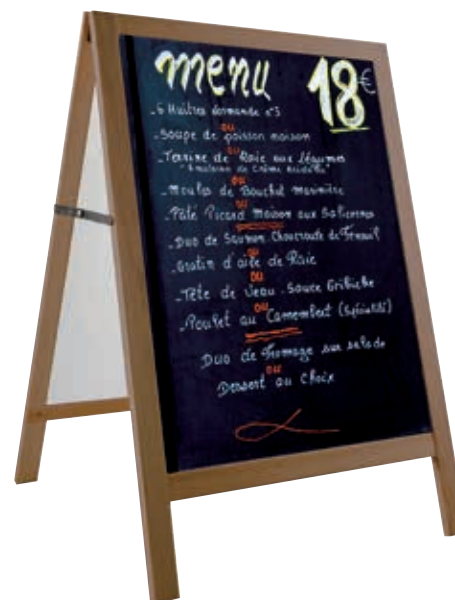 menu 18€
- 6 Huîtres Normande n°3
ou
- Soupe de poisson maison
ou
- Terrine de Raie aux légumes
"Émulsion de Crème
ou
- Moules de Bouchot marinière
ou
- Pâté Picard maison aux Salicornes
- Duo de Saumon Choucroute de Fenouil
ou
- Gratin d'aile de Raie
ou
- Tête de Veau - Sauce Gribiche
ou
- Poulet au Camembert (Spécialité)
Duo de fromage sur salade
ou
Dessert au Choix